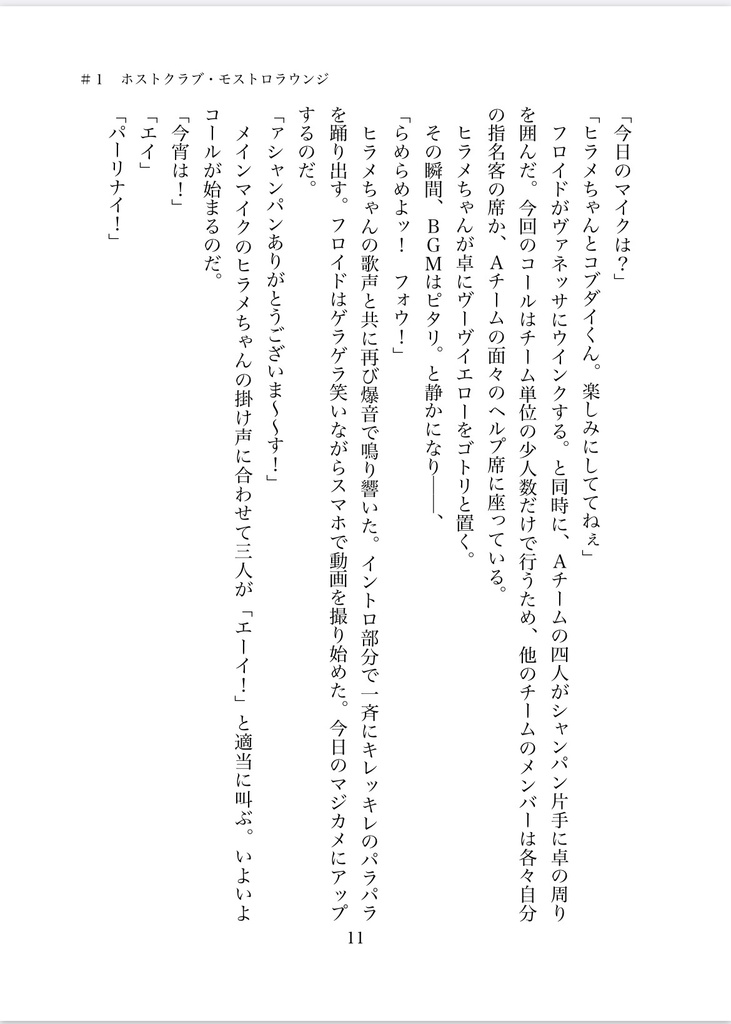 #1　ホストクラブ・モストロラウンジ
「今日のマイクは？」
「ヒラメちゃんとコブダイくん。楽しみにしててねぇ」
　フロイドがヴァネッサにウインクする。と同時に、Aチームの四人がシャンパン片手に卓の周り
を囲んだ。今回のコールはチーム単位の少人数だけで行うため、他のチームのメンバーは各々自分
の指名客の席か、Aチームの面々のヘルプ席に座っている。
　ヒラメちゃんが卓にヴーヴイエローをゴトリと置く。
　その瞬間、BGMはピタリ。と静かになり――、
「らめらめよッ！　フォウ！」
　ヒラメちゃんの歌声と共に再び爆音で鳴り響いた。イントロ部分で一斉にキレッキレのパラパラ
を踊り出す。フロイドはゲラゲラ笑いながらスマホで動画を撮り始めた。今日のマジカメにアップ
するのだ。
「ァシャンパンありがとうございま〜〜す！」
　メインマイクのヒラメちゃんの掛け声に合わせて三人が「エーイ！」と適当に叫ぶ。いよいよ
コールが始まるのだ。
「今宵は！」
「エイ」
「パーリナイ！」
11